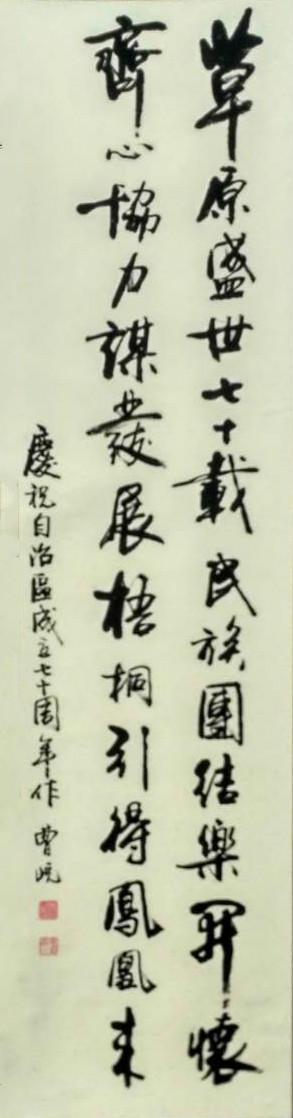 草原盛世七十載民族團結樂開懷
齊心協力謀發展梧桐引得鳳凰來
慶祝自治區成立七十周年作 曹晥